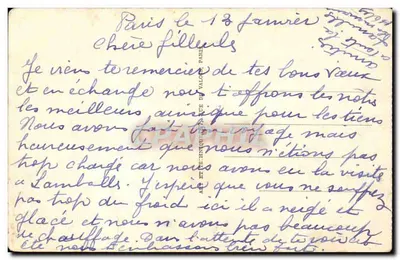 Paris le 13 Janvier
Chère filleule
Je viens te remercier de tes bons vœux
et en échange nous t'offrons les nôtres
les meilleurs ainsi que pour les tiens
Nous avons fait bon voyage mais
heureusement que nous n'étions pas
trop chargé car nous avons eu la visite
a Lamballe. J'espère que vous ne souffrez
pas trop du froid ici il a neigé et
glacé et nous n'avons pas beaucoup
de chauffage. Dans l'attente de te voir cet
été nous t'embrassons bien fort.
amitiés
a toute la
famille